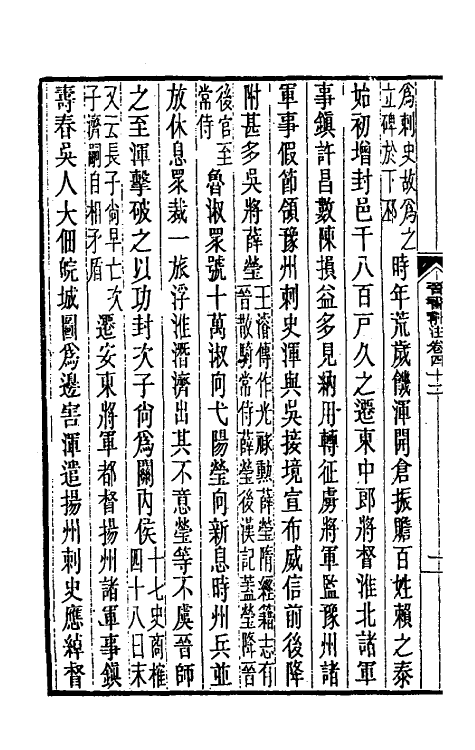 為刺史故為之立碑於下邳時年荒歲饑渾開倉振贍百姓賴之泰
始初增封邑千八百戶久之遷東中郎將督淮北諸軍
事鎮許昌數陳損益多見納用轉征虜將軍監豫州諸
軍事假節領豫州刺史渾與吳接境宣布威信前後降
附甚多吳將薛瑩王濬傳作光祿勳薛瑩隋經籍志有晉散騎常侍薛瑩後漢記蓋瑩降晉
後官至常侍魯淑眾號十萬淑向弋陽瑩向新息時州兵並
放休息眾裁一旅浮淮潛濟出其不意瑩等不虞晉師
之至渾擊破之以功封次子尚為關內侯十七史商榷四十八日末
又云長子尚早亡次子濟嗣自相矛盾遷安東將軍都督揚州諸軍事鎮
壽春吳人大佃皖城圖為邊害渾遣揚州刺史應綽督
晉書斠注卷四十二